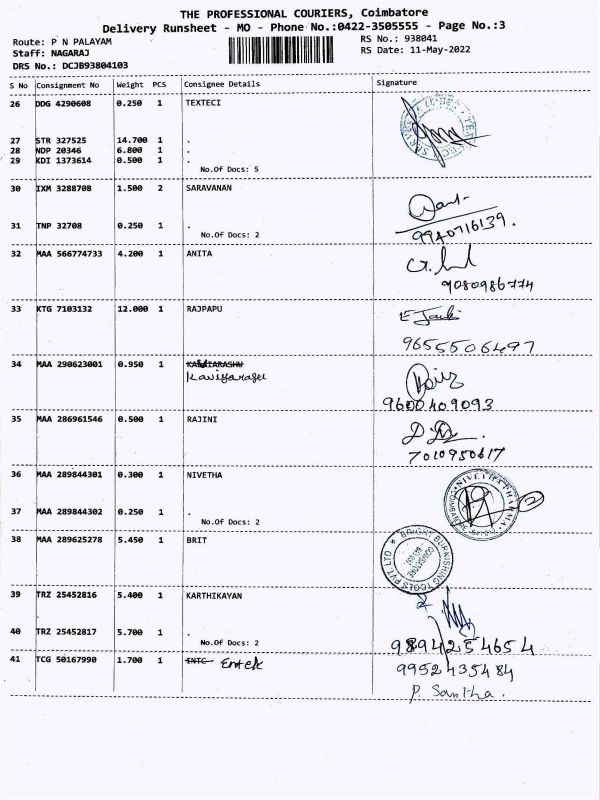 THE PROFESSIONAL COURIERS, Coimbatore
Delivery Runsheet - MO - Phone No.:0422-3505555 - Page No.:3
Route: P N PALAYAM RS No.: 938041
Staff: NAGARAJ RS Date: 11-May-2022
DRS No.: DCJB93804103
S No Consignment No Weight PCS Consignee Details Signature
26 DDG 4290608 0.250 1 TEXTECI
27 STR 327525 14.700 1 .
28 NDP 20346 6.800 1 .
29 KDI 1373614 0.500 1 .
No.Of Docs: 5
30 IXM 3288708 1.500 2 SARAVANAN
31 TNP 32708 0.250 1 .
No.Of Docs: 2
9940716139.
32 MAA 566774733 4.200 1 ANITA
9080986774
33 KTG 7103132 12.000 1 RAJPAPU
9655506497
34 MAA 290623001 0.950 1
Kaviyarasu
9600409093
35 MAA 286961546 0.500 1 RAJINI
7010950617
36 MAA 289844301 0.300 1 NIVETHA
37 MAA 289844302 0.250 1 .
No.Of Docs: 2
NIVETHA PHARMA
COIMBATORE
2
38 MAA 289625278 5.450 1 BRIT
BRIGHT BURNISHING TOOLS PVT LTD
39 TRZ 25452816 5.400 1 KARTHIKAYAN
40 TRZ 25452817 5.700 1 .
No.Of Docs: 2
9894254654
41 TCG 50167990 1.700 1 INTC Entek
9952435484
P. Santha.